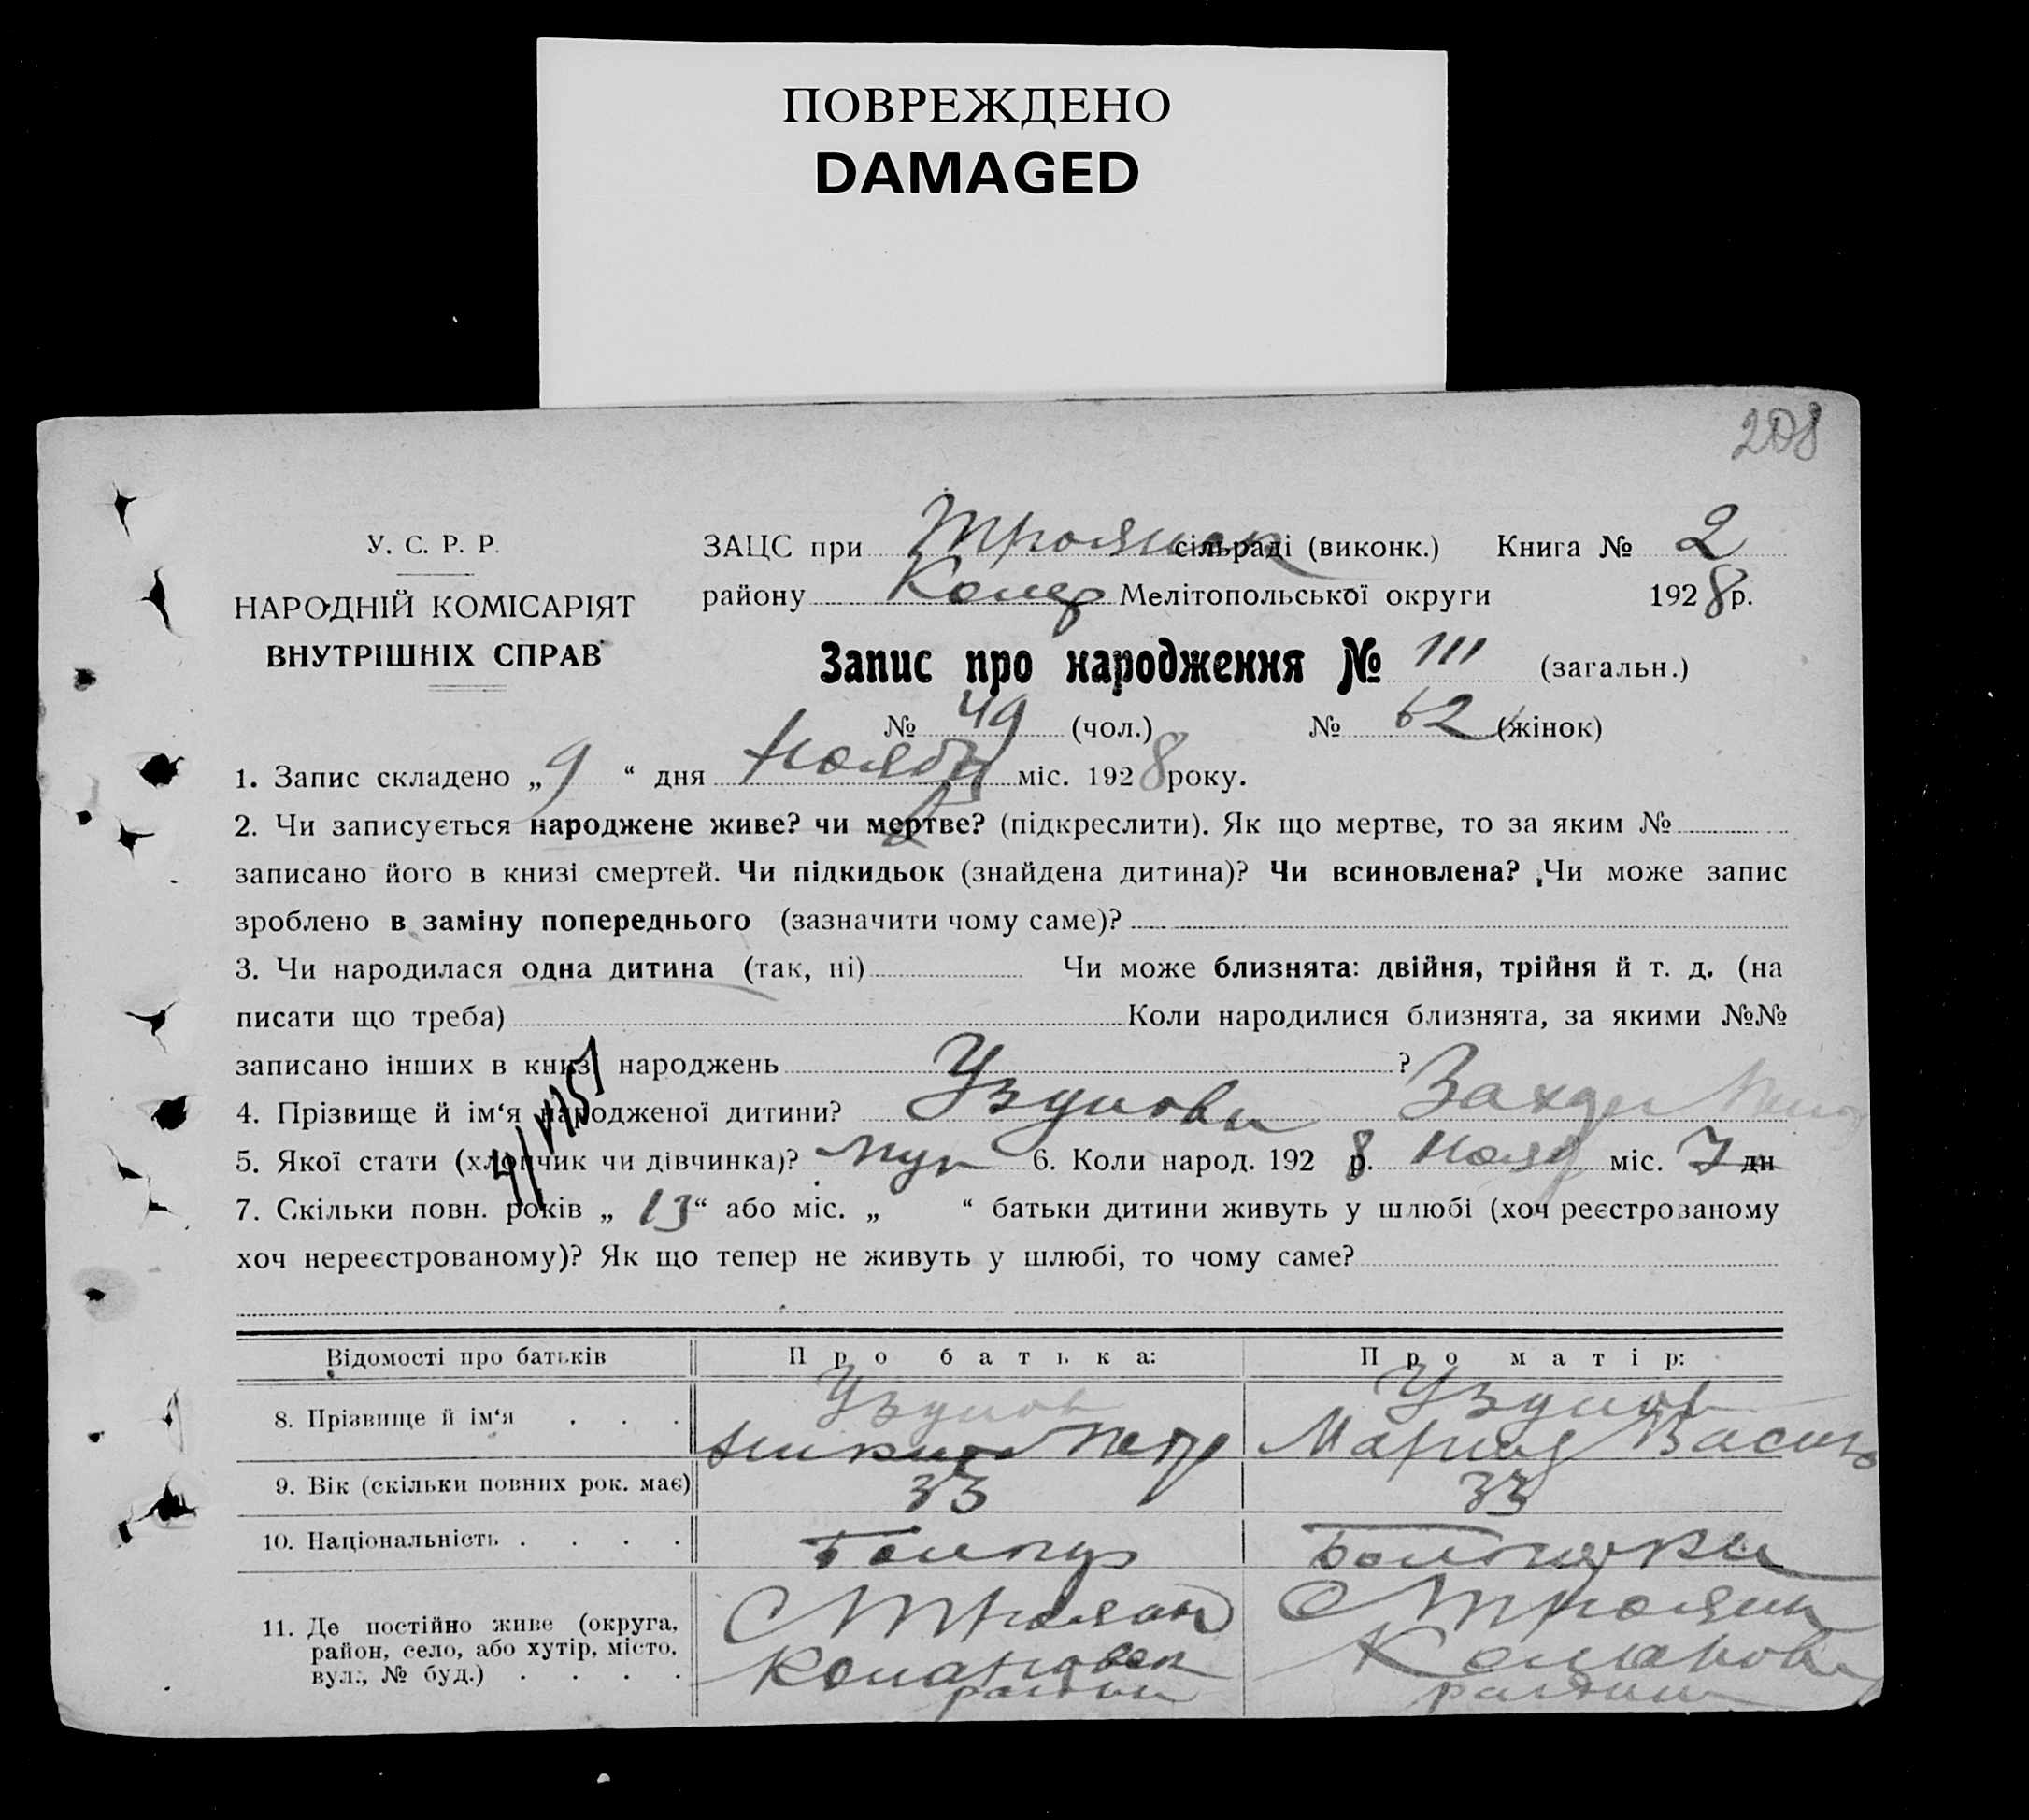 ПОВРЕЖДЕНО
DAMAGED
208
У. С. Р. Р.
НАРОДНІЙ КОМІСАРІЯТ
ВНУТРІШНІХ СПРАВ
ЗАЦС при Троянск сільраді (виконк.) Книга № 2
району Комар Мелітопольської округи 1928 р.
Запис про народження № 111 (загальн.)
№ 49 (чол.) № 62 (жінок)
1. Запис складено „9“ дня Ноября міс. 1928 року.
2. Чи записується народжене живе? чи мертве? (підкреслити). Як що мертве, то за яким №
записано його в книзі смертей. Чи підкидьок (знайдена дитина)? Чи всиновлена? Чи може запис
зроблено в заміну попереднього (зазначити чому саме)?
3. Чи народилася одна дитина (так, ні) Чи може близнята: двійня, трійня й т. д. (на
писати що треба) Коли народилися близнята, за якими №№
записано інших в книзі народжень ?
4. Прізвище й ім‘я народженої дитини? Узунов
5. Якої стати (хлопчик чи дівчинка)? Муж 6. Коли народ. 1928 р. Нояб міс. 7 дн
7. Скільки повн. років „13“ або міс. „ “ батьки дитини живуть у шлюбі (хоч реєстрованому
хоч нереєстрованому)? Як що тепер не живуть у шлюбі, то чому саме?
Відомості про батьків Про батька: Про матір:
8. Прізвище й ім‘я . . . Узунов Узунов
Петр Мария Василь
9. Вік (скільки повних рок. має) 33 33
10. Національність . . . .
11. Де постійно живе (округа,
район, село, або хутір, місто,
вул., № буд.) . . . .
С Троян С Троян
Комаровск Комаров
района района